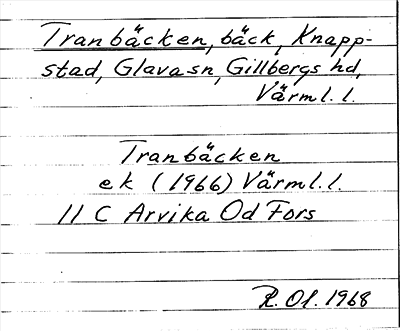 Tranbäcken, bäck, Knapp-
stad, Glava sn, Gillbergs hd,
Värml. l.
Tranbäcken
ek (1966) Värml. l.
11 C Arvika Od Fors
R. Ol. 1968